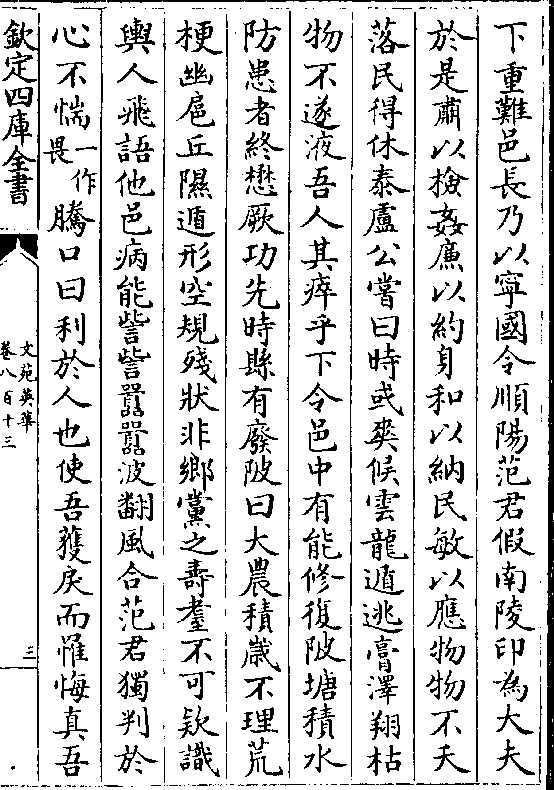 下重難邑長乃以寧國令順陽范君假南陵印為大夫
於是肅以檢姦廉以約身和以納民敏以應物物不夭
落民得休泰盧公嘗曰時或爽候雲龍遁逃膏澤翔枯
物不遂液吾人其瘁乎下令邑中有能修復陂塘積水
防患者終懋厥功先時縣有廢陂曰大農積歲不理荒
梗幽扈丘隰遁形空規殘狀非鄉黨之壽耋不可欵識
輿人飛語他邑病能訾訾嚚嚚波翻風合范君獨判於
心不惴一作畏騰口曰利於人也使吾獲戾而惟悔真吾
欽定四庫全書
文苑英華
卷八百十三
三